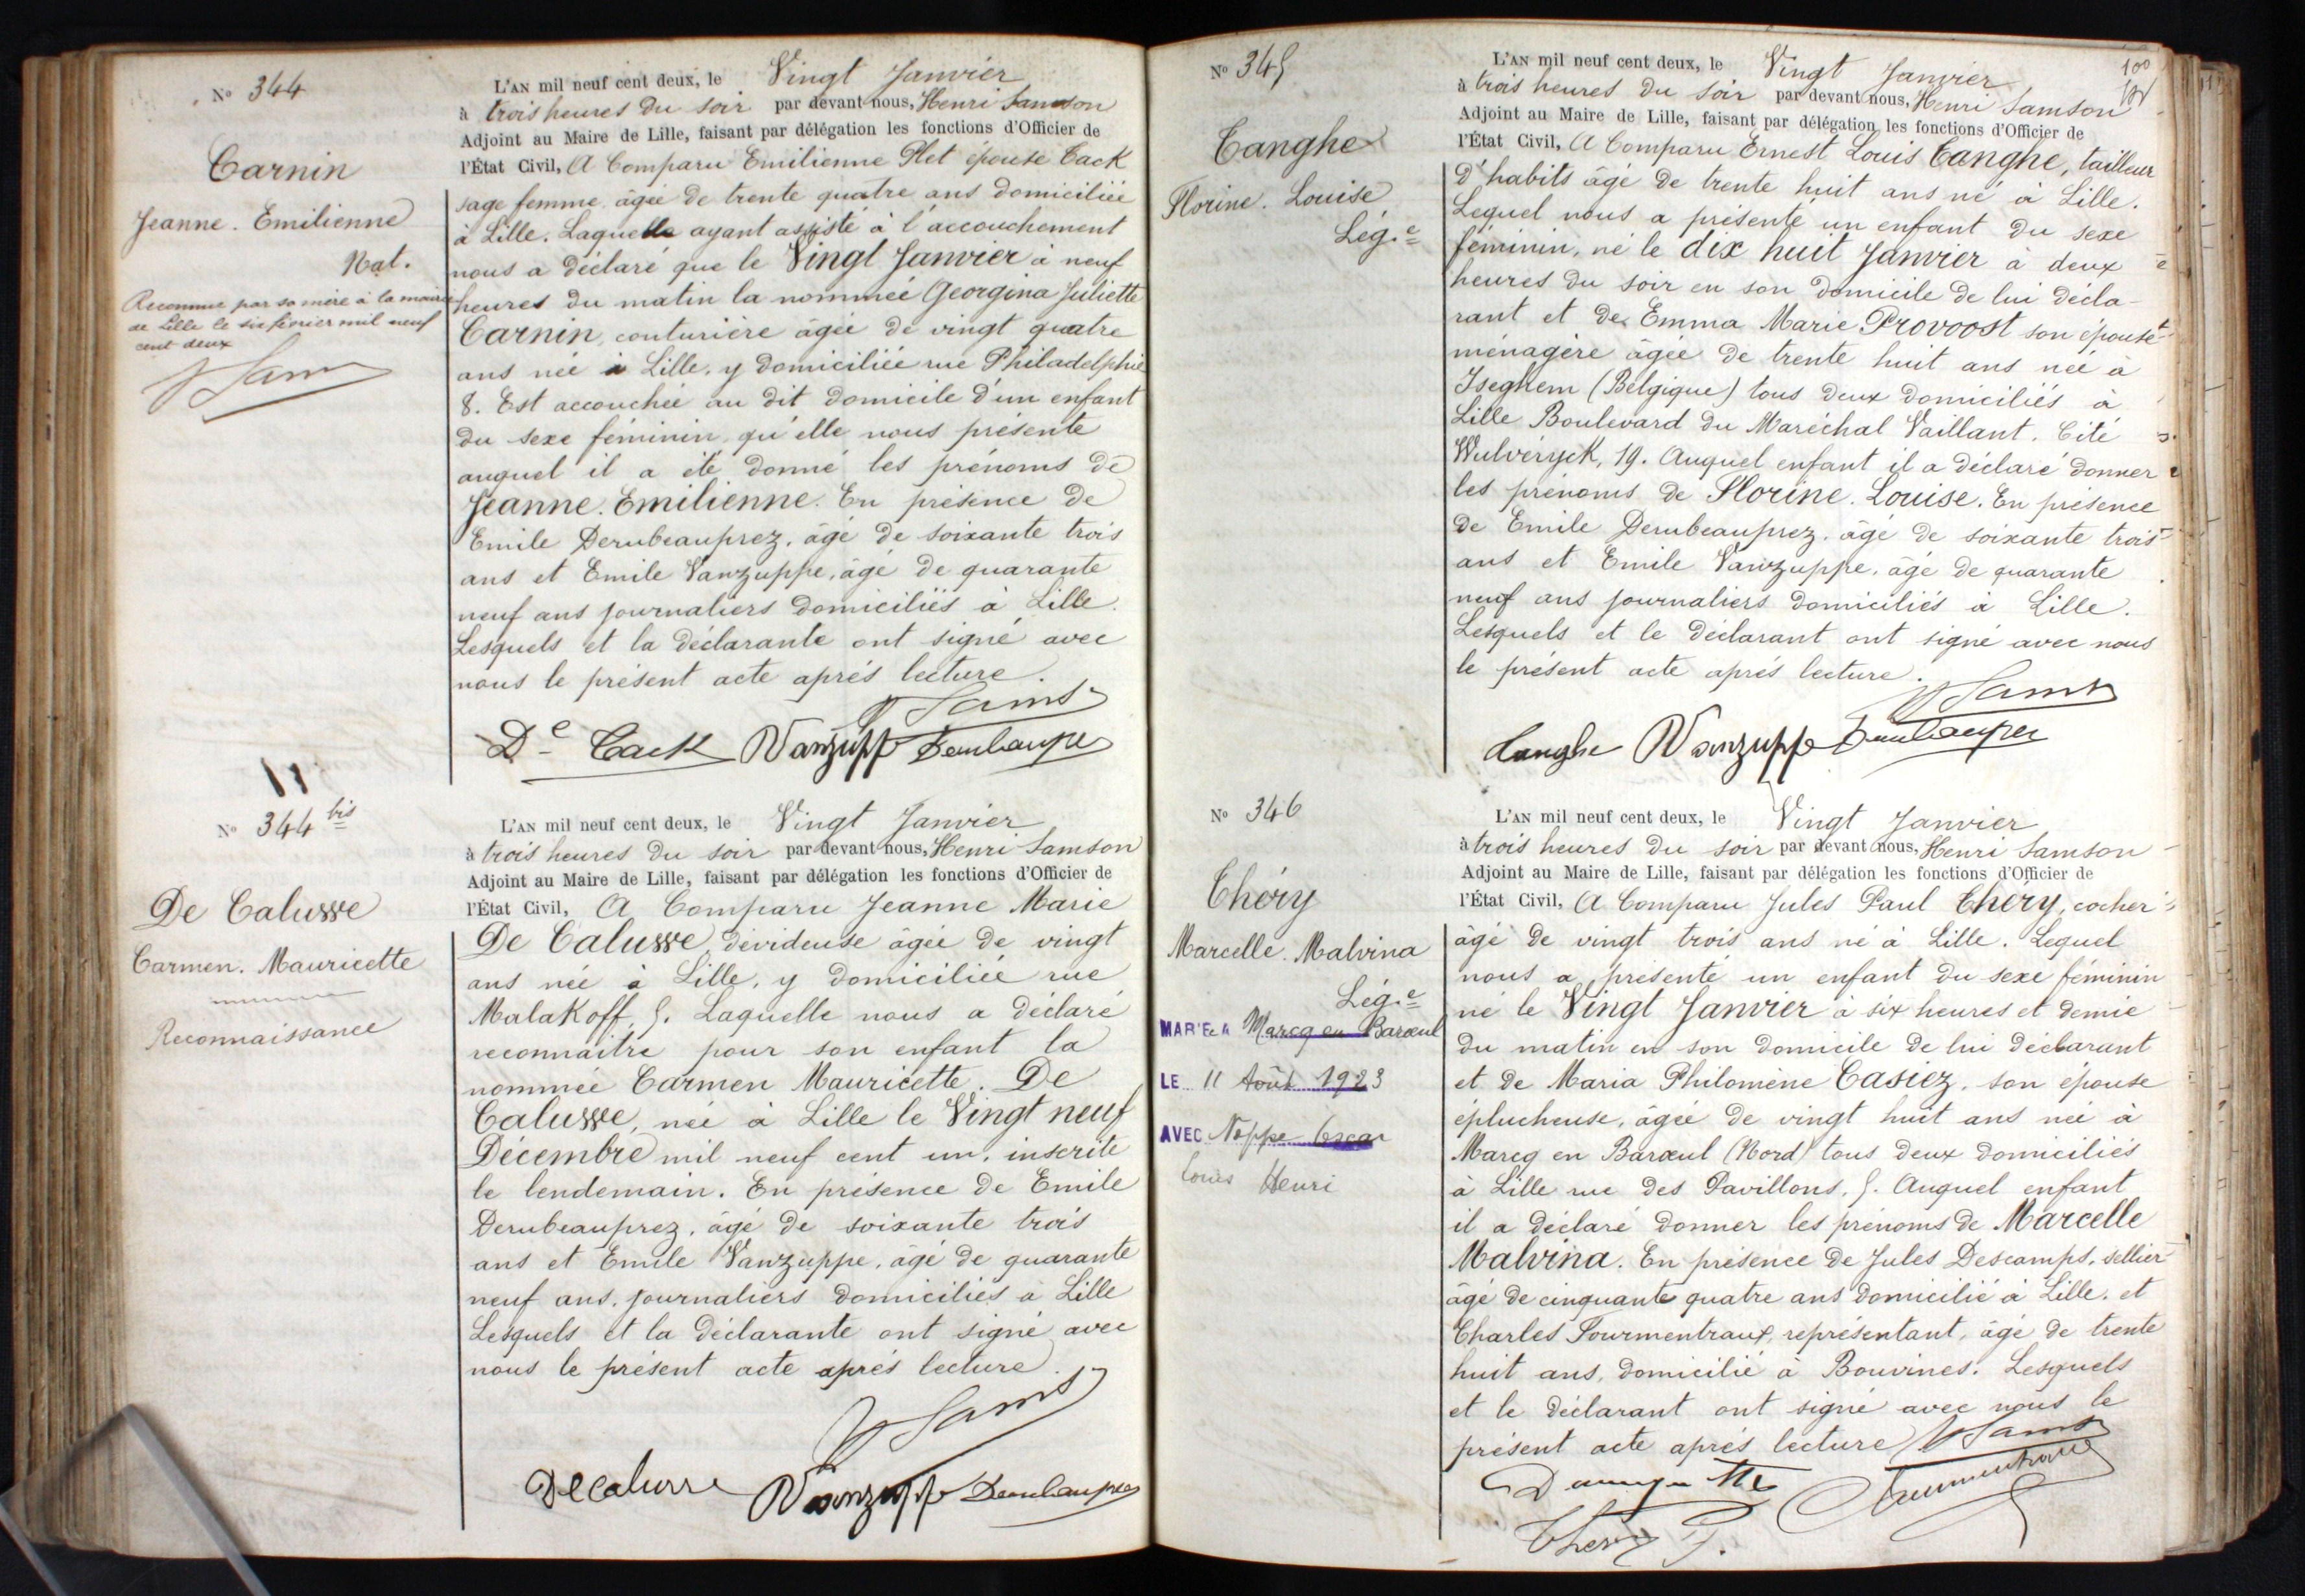 N° 344
Carnin
Jeanne. Emilienne
Nat.
Reconnue par sa mère à la mairie
de Lille le six février mil neuf
cent deux
L'AN mil neuf cent deux, le Vingt Janvier
à trois heures du soir par devant nous, Henri Samson
Adjoint au Maire de Lille, faisant par délégation les fonctions d'Officier de
l'État Civil, A Comparu Emilienne Plet épouse Cack
sage femme âgée de trente quatre ans domiciliée
à Lille. Laquelle ayant assisté à l'accouchement
nous a déclaré que le Vingt Janvier à neuf
heures du matin la nommée Georgina Juliette
Carnin, couturière âgée de vingt quatre
ans née à Lille, y domiciliée rue Philadelphie
8. Est accouchée au dit domicile d'un enfant
du sexe féminin qu'elle nous présente
auquel il a été donné les prénoms de
Jeanne. Emilienne. En présence de
Emile Derubeauprez, âgé de soixante trois
ans et Emile Vanzuppe, âgé de quarante
neuf ans journaliers domiciliés à Lille.
Lesquels et la déclarante ont signé avec
nous le présent acte après lecture.
H Sams
De Cack Vanzuppe Derubeauprez
N° 344 bis
De Calusse
Carmen. Mauricette
Reconnaissance
L'AN mil neuf cent deux, le Vingt Janvier
à trois heures du soir par devant nous, Henri Samson
Adjoint au Maire de Lille, faisant par délégation les fonctions d'Officier de
l'État Civil, A Comparu Jeanne Marie
De Calusse, dévideuse âgée de vingt
ans née à Lille, y domiciliée rue
Malakoff, 5. Laquelle nous a déclaré
reconnaitre pour son enfant la
nommée Carmen Mauricette. De
Calusse, née à Lille le Vingt neuf
Décembre mil neuf cent un, inscrite
le lendemain. En présence de Emile
Derubeauprez, âgé de soixante trois
ans et Emile Vanzuppe, âgé de quarante
neuf ans, journaliers domiciliés à Lille
Lesquels et la déclarante ont signé avec
nous le présent acte après lecture.
H Sams
Decalusse Vanzuppe Derubeauprez
N° 345
Canghe
Florine. Louise
Lég.e
100
L'AN mil neuf cent deux, le Vingt Janvier
à trois heures du soir par devant nous, Henri Samson
Adjoint au Maire de Lille, faisant par délégation les fonctions d'Officier de
l'État Civil, A Comparu Ernest Louis Canghe, tailleur
d'habits âgé de trente huit ans né à Lille.
Lequel nous a présenté un enfant du sexe
féminin, né le dix huit Janvier à deux
heures du soir en son domicile de lui décla-
rant et de Emma Marie Provoost son épouse
ménagère âgée de trente huit ans née à
Iseghem (Belgique) tous deux domiciliés à
Lille Boulevard du Maréchal Vaillant. Cité
Wulvéryck, 19. Auquel enfant il a déclaré donner
les prénoms de Florine. Louise. En présence
de Emile Derubeauprez, âgé de soixante trois
ans et Emile Vanzuppe, âgé de quarante
neuf ans journaliers domiciliés à Lille.
Lesquels et le déclarant ont signé avec nous
le présent acte après lecture.
H Sams
Canghe Vanzuppe Derubeauprez
N° 346
Théry
Marcelle. Malvina
Lég.e
MARIÉE A Marcq en Barœul
LE 11 Août 1923
AVEC Noppe Oscar
Louis Henri
L'AN mil neuf cent deux, le Vingt Janvier
à trois heures du soir par devant nous, Henri Samson
Adjoint au Maire de Lille, faisant par délégation les fonctions d'Officier de
l'État Civil, A Comparu Jules Paul Théry, cocher
âgé de vingt trois ans né à Lille. Lequel
nous a présenté un enfant du sexe féminin
né le Vingt Janvier à six heures et demie
du matin en son domicile de lui déclarant
et de Maria Philomène Casiez, son épouse
éplucheuse, âgée de vingt huit ans née à
Marcq en Barœul (Nord) tous deux domiciliés
à Lille rue des Pavillons, 5. Auquel enfant
il a déclaré donner les prénoms de Marcelle
Malvina. En présence de Jules Descamps, sellier
âgé de cinquante quatre ans domicilié à Lille, et
Charles Fourmentraux, représentant, âgé de trente
huit ans, domicilié à Bouvines. Lesquels
et le déclarant ont signé avec nous le
présent acte après lecture H Sams
Théry P.